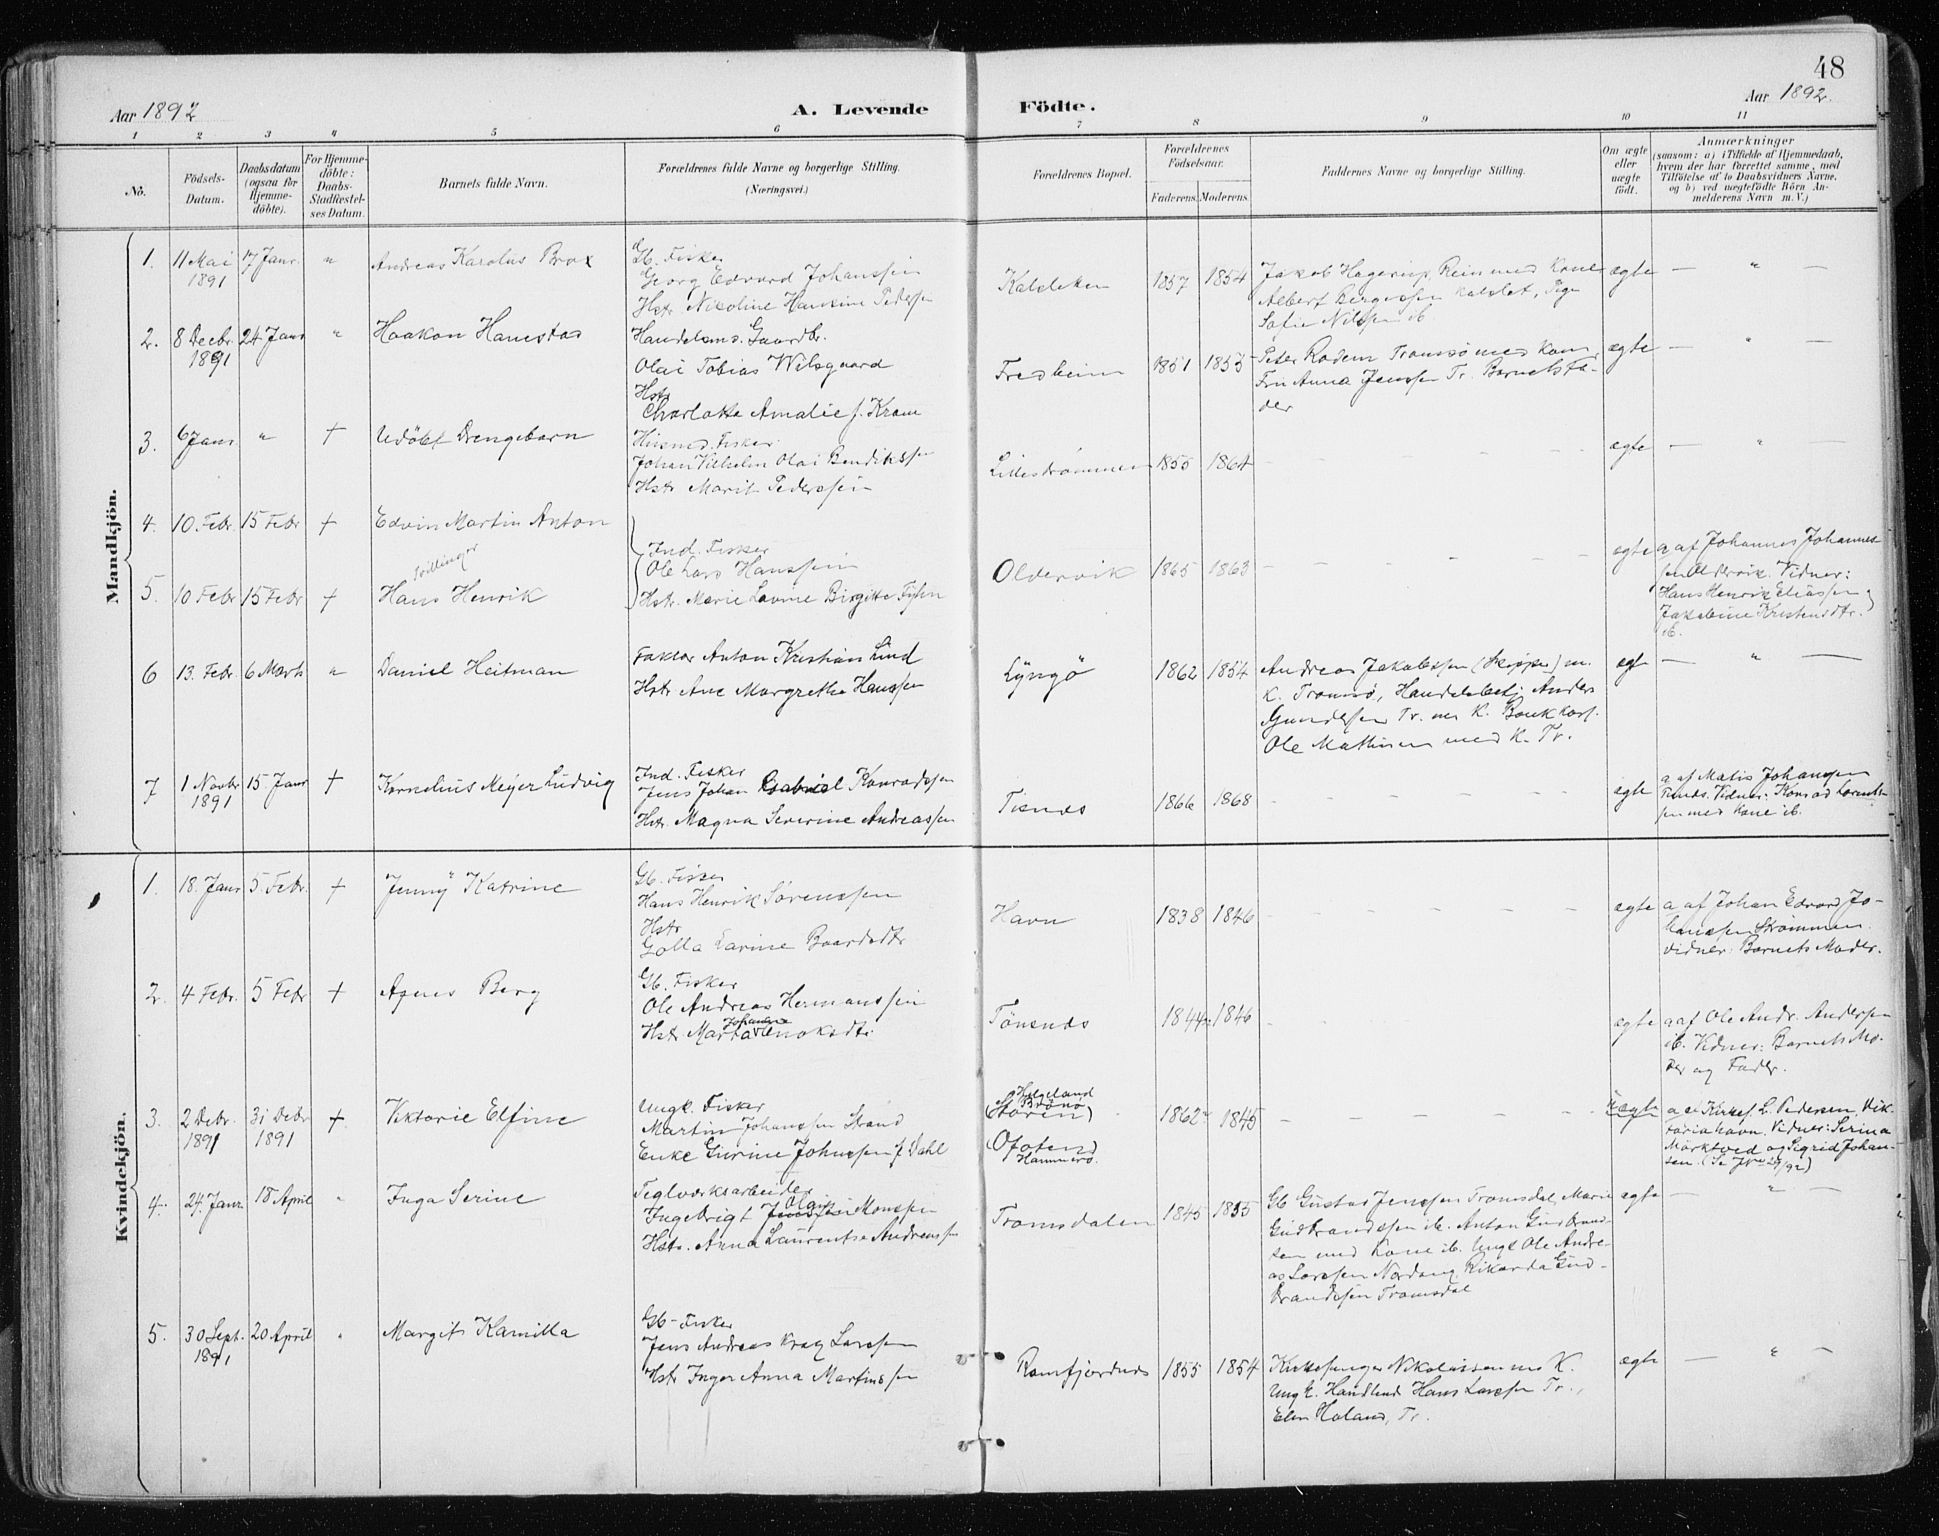 48
Aar 1892
A. Levende
Födte.
Aar 1892.
1 2 3 4 5 6 7 8 9 10 11
No.
Födsels-
Datum.
Daabsdatum
(ogsaa for
Hjemme-
döbte).
For Hjemme-
döbte:
Daabs-
Stadfæstel-
ses Datum.
Barnets fulde Navn.
Forældrenes fulde Navne og borgerlige Stilling.
(Næringsvei.)
Forældrenes Bopæl.
Forældrenes
Födselsaar.
Faderens. Moderens.
Faddernes Navne og borgerlige Stilling.
Om ægte
eller
uægte
födt.
Anmærkninger
(saasom: a) i Tilfælde af Hjemmedaab,
hvem der har forrettet samme, med
Tilföielse af to Daabsvidners Navne,
og b) ved uægtefödte Börn An-
melderens Navn m. V.)
Mandkjön.
1. 11 Mai 17 Janr. " Andreas Karolus Brox
1891
Gb. Fisker
Georg Edvard Johanssen
Hstr Nicoline Hansine Pedersen
1857 1854
Jakob Hagerup Rein med Kone
Albert Birgessen Kalslet, Pige
Sofie Nilssen ib.
ægte — " —
2. 8 Decbr 24 Janr " Haakon Hanestad
1891
Handelsms. Gaardbr.
Olai Tobias Wilsgaard
Hstr
Charlotte Amalie f. Krane
Fredheim 1851 1855
Peter Rodem Tromsø med Kone,
Fru Anna Jenssen Tr. Barnets Fa-
der
ægte — " —
3. 6 Janr " † Udöbt Drengebarn
Husmd. Fisker
Johan Vilhelm Olai Bendikssen
Hstr Marit Pederssen
Lillestrømmen 1855 1864 ægte — " —
4. 10. Febr. 15 Febr † Edvin Martin Anton
tvillinger
5. 10 Febr 15 Febr † Hans Henrik
Ind. Fisker
Ole Lars Hanssen
Hstr. Marie Lovine Birgitte
Oldervik 1865 1863 ægte
a af Johannes Johannes-
sen Oldervik. Vidner:
Hans Henrik Eliassen og
Jakobine Kristensdtr.
ib.
6 13. Febr. 6 Marts " Daniel Heitman
Faktor Anton Kristian Lind
Hstr Ane Margrethe Hanssen
Lyngö 1862 1854
Andreas Jakobssen (Skipper) m.
K. Tromsö, Handelsbetj. Anders
Gunderssen Tr. med K. Bankkass.
Ole Mathisen med K. Tr.
ægte — " —
7 1 Novbr 15 Janr † Kornelius Meyer Ludvig
1891
Ind. Fisker
Jens Johan Gabriel Konradssen
Hstr. Magna Severine Andreassen
Tisnes 1866 1868 ægte
a af Matis Johansen
Tisnes. Vidner: Konrad Lorent-
sen med Kone ib.
Kvindekjön.
1. 18. Janr 5. Febr. † Jenny Katrine
Gb. Fisker
Hans Henrik Sørenssen
Hstr
Golla Karine Baardsdtr
Havn 1838 1846 ægte
a af Johan Edvard Jo-
hanssen Strømmen
vidner: Barnets Moder.
2. 4 Febr. 5 Febr † Agnes Berg
Gb. Fisker
Ole Andreas Hermanssen
Johanna
Hstr Marta Enoksdtr
Tönsnes 1844 1846 ægte
a af Ole Andr. Anderssen
ib. Vidner: Barnets Mo-
der og Fader.
3. 2 Debr. 31 Debr † Viktorie Elfine
1891 1891
Ungk. Fisker
Martin Johanssen Strand
Enke Gurine Johnssen f. Dahl
Helgeland
Brönö
Ofoten
Hammerö.
1862 1845 uægte
a af Kirkes. L. Pedersen, Vik-
toriahavn. Vidner: Serina
Marktved og Sigrid Johan-
sen.
4. 24. Janr. 18 April " Inga Serine
Teglværksarbeider
Olai
Ingebrigt Monssen
Hstr. Anna Laurentse Andreassen
Tromsdalen 1845 1855
Gb Gustav Jenssen Tromsdal, Marie
Gudbrandssen ib. Anton Gudbrand-
sen med Kone ib. Ungk Ole Andre-
as Larssen Nordang, Rikarda Gud-
brandssen Tromsdal
ægte — " —
5. 30 Sept. 20 April " Margit Kamilla
1891
Gb- Fisker
Jens Andreas Krag Larssen
Hstr Inger Anna Martinssen
Ramfjordnes 1855 1854
Kirkesanger Nikolaissen med K.
Ungk. Handlend Hans Larssen Tr.,
Elen Holand, Tr.
ægte — " —